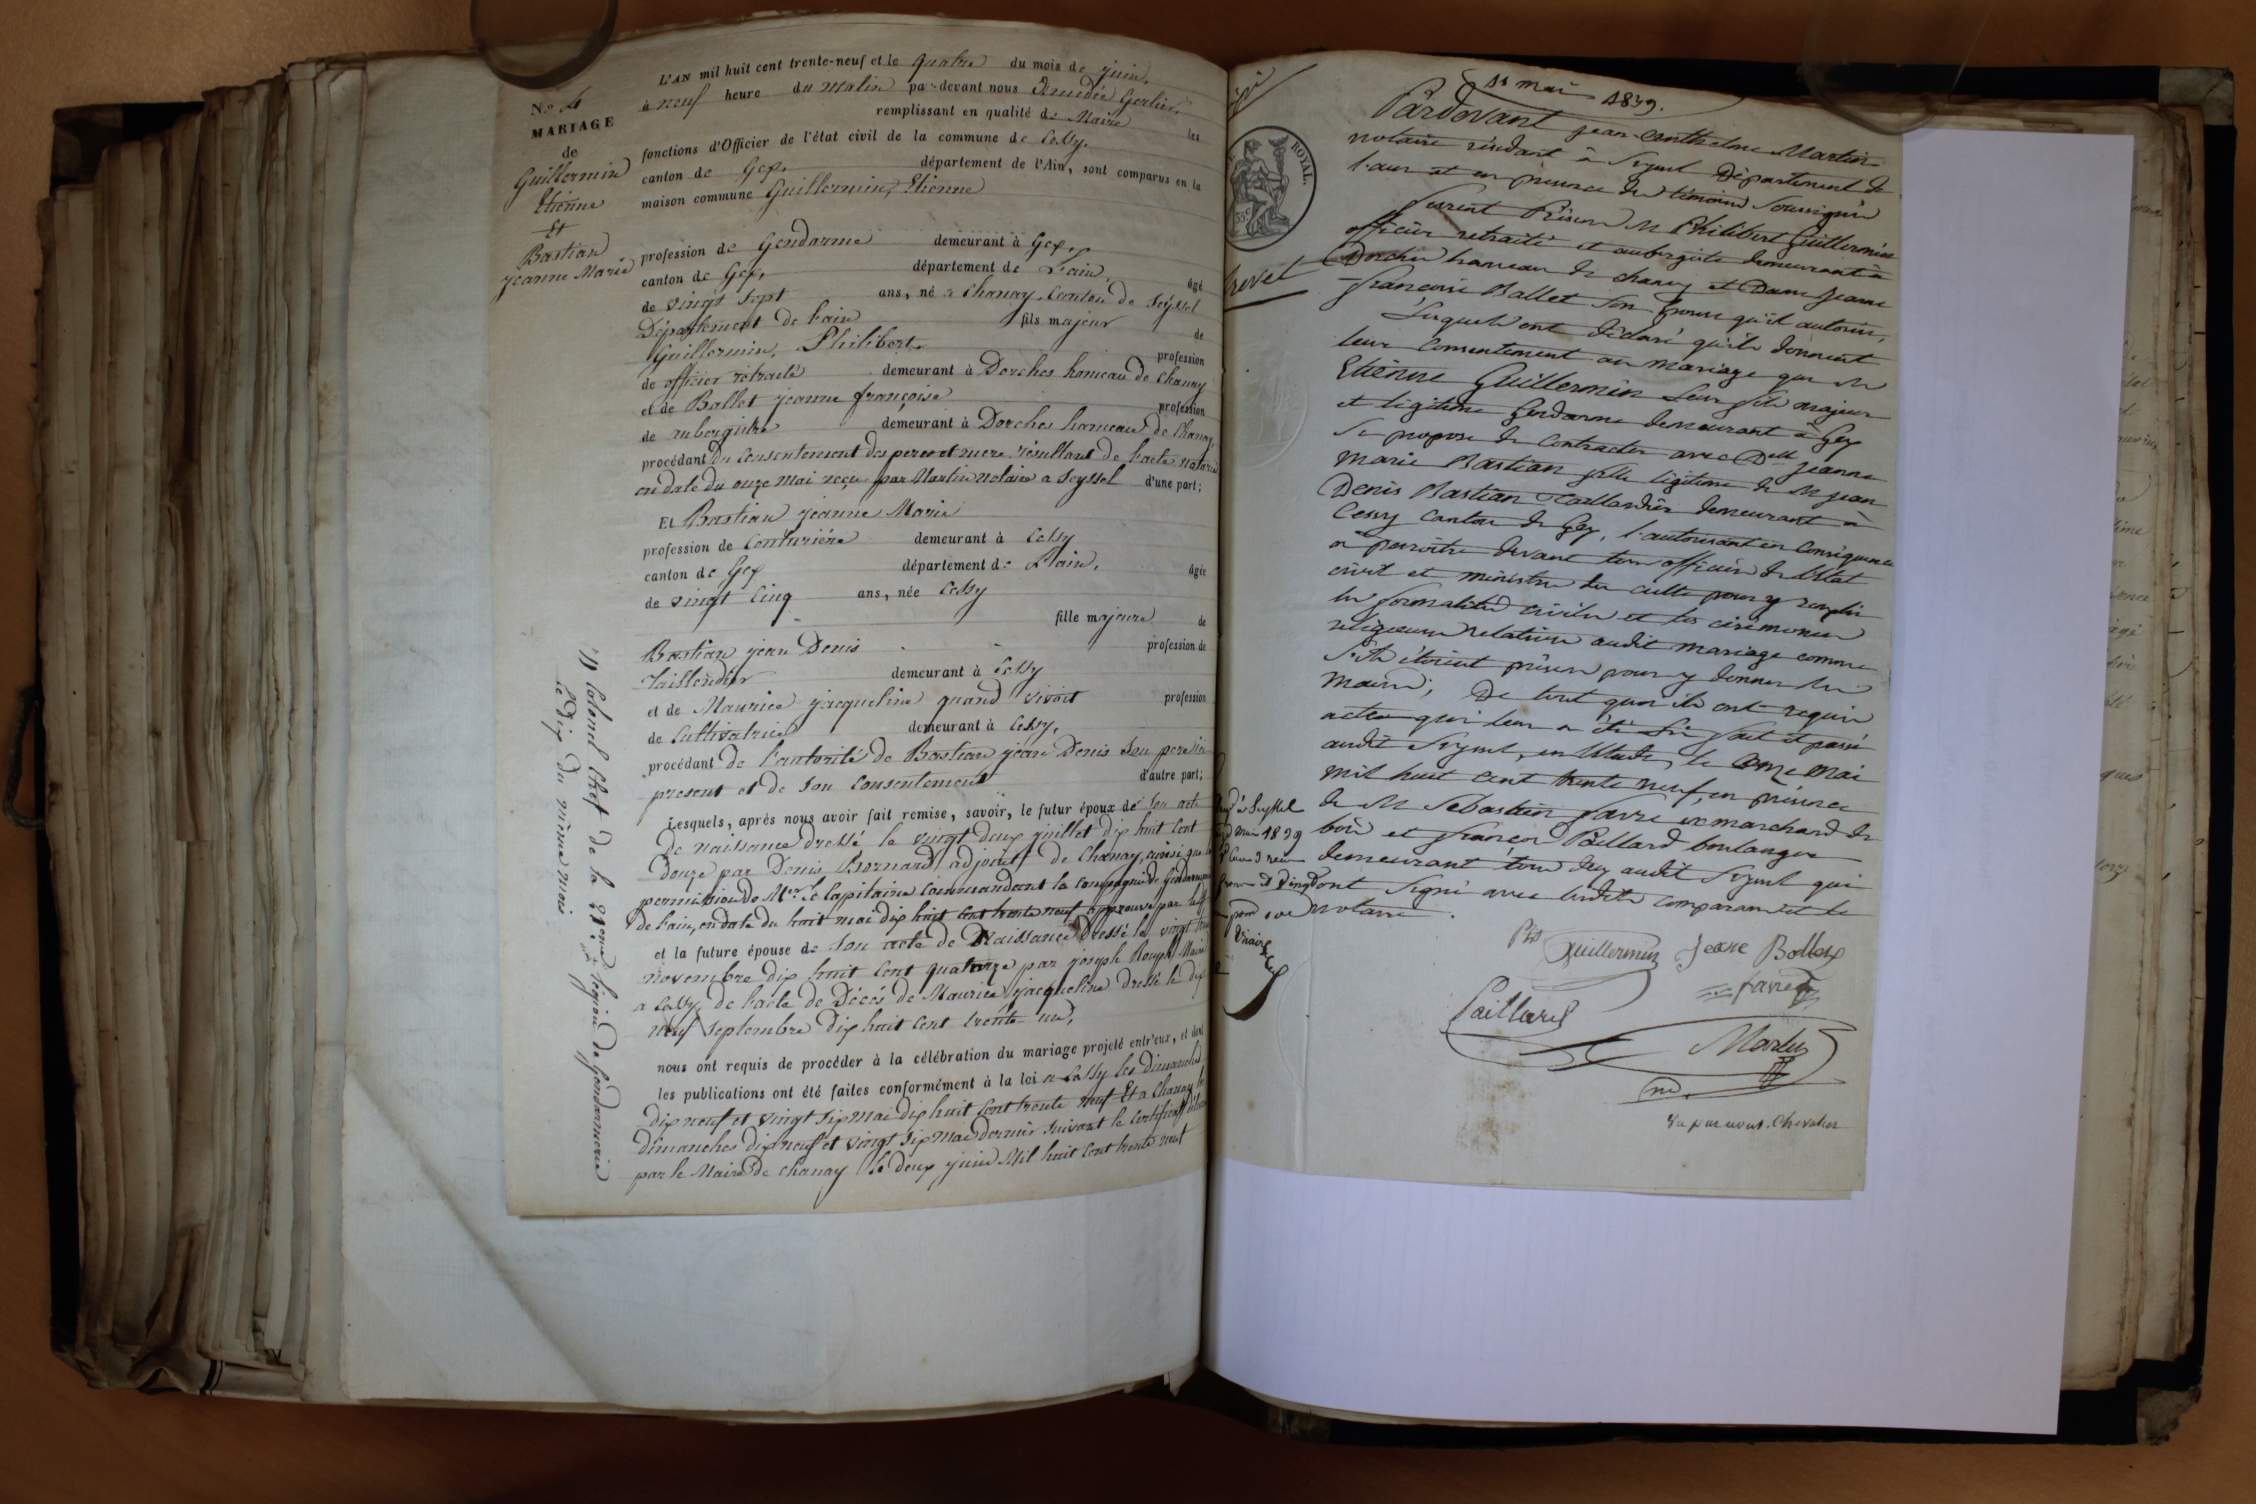 N.o 4
MARIAGE
de
Guillermin
Etienne
Et
Bastian
jeanne Marie
L'AN mil huit cent trente-neuf et le quatre du mois de juin,
à neuf heure du matin par-devant nous
remplissant en qualité de Maire les
fonctions d'Officier de l'état civil de la commune de Cessy,
canton de Gex, département de l'Ain, sont comparus en la
maison commune Guillermin, Etienne
profession de Gendarme demeurant à Gex,
canton de Gex, département de L'ain, âgé
de vingt sept ans, né a Chanay Canton de Seyssel
Département de L'ain fils majeur de
Guillermin, Philibert profession
de officier retraité demeurant à Dorches hameau de Chanay
et de Ballet jeanne françoise profession
de aubergiste demeurant à Dorches hameau de Chanay,
procédant du Consentement des pere et mere résultant de l'acte notarié
en date du onze Mai reçu par Martin notaire a Seyssel d'une part;
Et Bastian jeanne Marie
profession de Couturière demeurant à Cessy
canton de Gex département de L'ain, âgée
de vingt Cinq ans, née Cessy
fille majeure de
Bastian jean Denis profession de
Taillandier demeurant à Cessy
et de Maurice jacqueline quand vivait profession
de Cultivatrice demeurant à Cessy,
procédant de l'autorité de Bastian jean Denis Son pere ici
present et de Son Consentement d'autre part;
Lesquels, après nous avoir fait remise, savoir, le futur époux de Son acte
De naissance dressé le vingt deux juillet dix huit Cent
Douze par Denis Bornard adjoint de Chanay, ainsi que la
permission de Mr. le Capitaine Commandant la Compagnie de Gendarmerie
de l'ain, en date du huit mai dix huit Cent trente neuf approuvé par le
et la future épouse de Son acte de Naissance Dressé le vingt
novembre dix huit Cent quatorze par joseph Maire
a Cessy, de l'acte de Décès de Maurice jacqueline dressé le dix
neuf Septembre dix huit Cent trente un,
nous ont requis de procéder à la célébration du mariage projeté entr'eux, et dont
les publications ont été faites conformément à la loi a Cessy les Dimanches
dix neuf et vingt six mai dix huit Cent trente neuf Et a Chanay les
dimanches dix neuf et vingt six mai dernier suivant le Certificat
par le Maire de Chanay le deux juin Mil huit Cent trente neuf
Colonel Chef de la Légion de Gendarmerie
le dix du même mois
11 mai 1839.
ROYAL.
35c
Brevet
Pardevant jean Anthelme Martin
notaire résidant à Seyssel Département de
l'ain et en presence des témoins soussignés
furent Présens M Philibert Guillermin
officier retraité et aubergiste demeurant à
Dorches hameau de chanay et Dame Jeanne
francoise Ballet son epouse qu'il autorise,
Lesquels ont déclaré qu'ils donnent
leur Consentement au mariage que Mr
Etienne Guillermin Leur fils majeur
et légitime Gendarme demeurant à Gex
se propose de contracter avec Delle jeanne
marie Bastian fille légitime de M jean
Denis Bastian Taillandier demeurant à
Cessy Canton de Gex, l'autorisant en Conséquence
à paroitre devant tous officiers de l'Etat
civil et ministre du culte pour y remplir
les formalités civiles et les cérémonies
religieuses relatives audit mariage comme
s'ils étoient présens pour y donner les
mains; De tout quoi ils ont requis
acte qui leur a été Fait et passé
audit Seyssel, en l'Etude, le onze mai
mil huit cent trente neuf, en présence
de M Sébastien favre marchand de
bois et françois Paillard boulanger
demeurant tous deux audit Seyssel qui
ont signé avec lesdits comparans et le
notaire.
à Seyssel
mai 1839
Guillermin Jeane Ballet
favre
Paillard
Martin